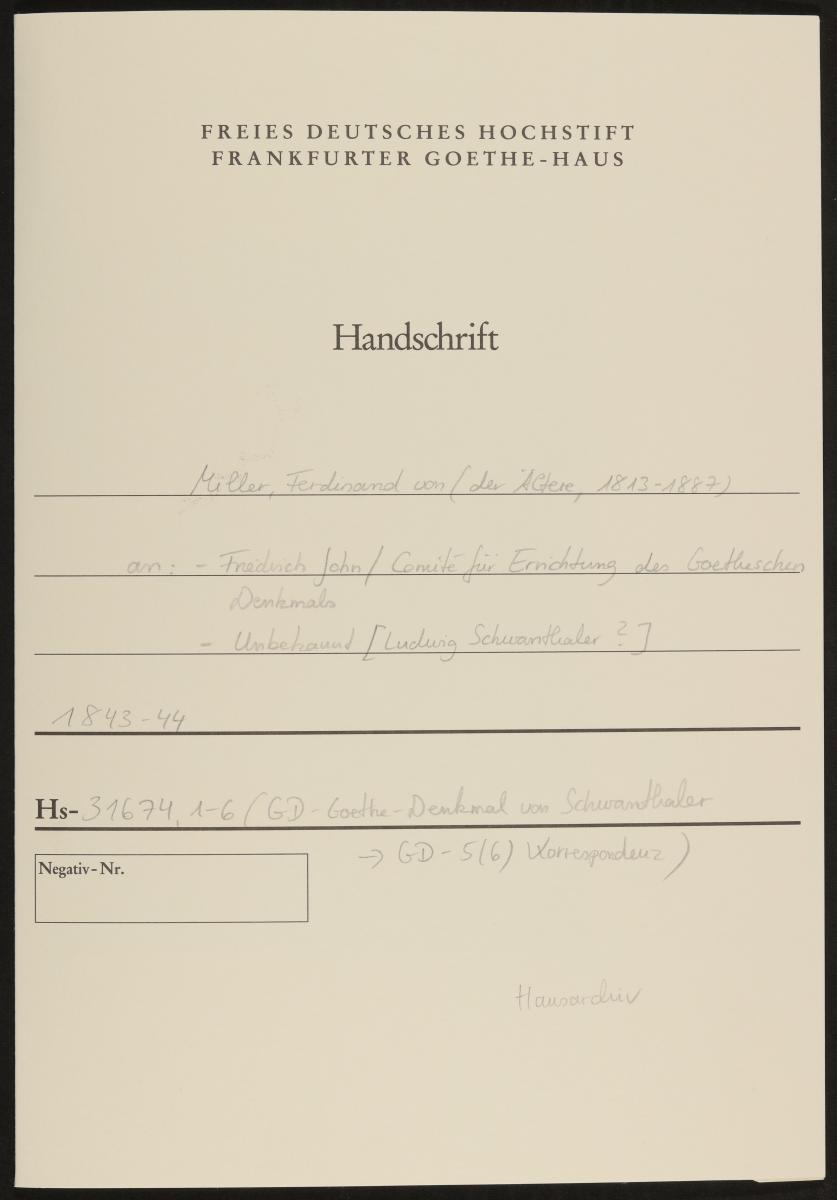 FREIES DEUTSCHES HOCHSTIFT
FRANKFURTER GOETHE-HAUS
Handschrift
Miller, Ferdinand von (der Ältere, 1813-1887)
an: - Friedrich John / Comité für Errichtung des Goetheschen
Denkmals
- Unbekannt [Ludwig Schwanthaler ?]
1843-44
Hs-31674, 1-6 (GD-Goethe-Denkmal von Schwanthaler
→ GD-5(6) Korrespondenz)
Negativ-Nr.
Hausarchiv